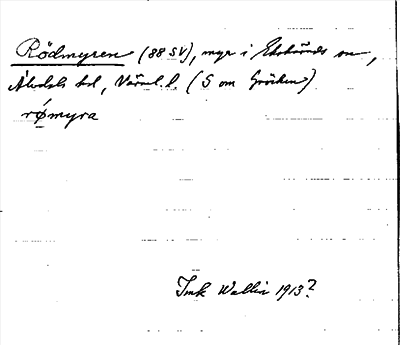 Rödmyren (88 SV), myr i Ekshärads sn,
Älvdals hd, Värml. l. (S om Gröcken)
rømyra
Imk Wallin 1913?